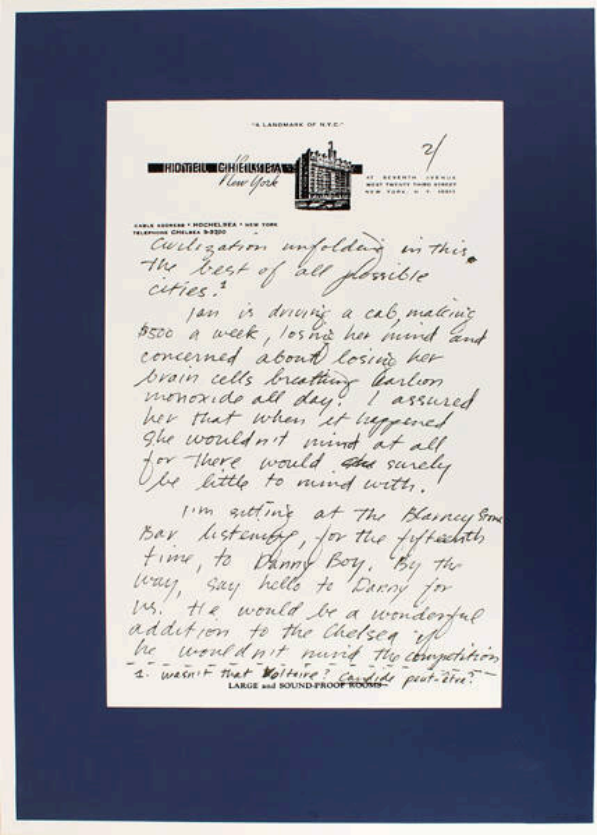 "A LANDMARK OF N.Y.C."
2/
HOTEL CHELSEA
New York
AT SEVENTH AVENUE
WEST TWENTY THIRD STREET
NEW YORK, N. Y. 10011
CABLE ADDRESS • HOCHELSEA • NEW YORK
TELEPHONE CHELSEA 3-3700
civilization unfolding in this,
the best of all possible
cities.¹
Jan is driving a cab, making
$500 a week, losing her mind and
concerned about losing her
brain cells breathing carbon
monoxide all day. I assured
her that when it happened
she wouldn't mind at all
for there would surely
be little to mind with.
I'm sitting at the Blarney Stone
Bar listening, for the fifteenth
time, to Danny Boy. By the
way, say hello to Danny for
us. He would be a wonderful
addition to the Chelsea if
he wouldn't mind the competition
1. wasn't that Voltaire? Candide peut-être?
LARGE and SOUND-PROOF ROOMS